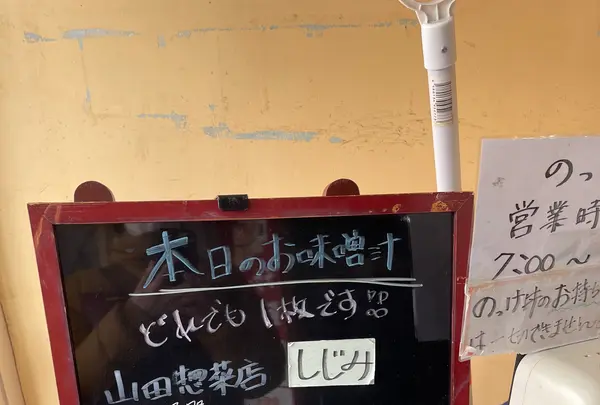 本日のお味噌汁
どれでも1枚です
山田惣菜店
しじみ
のっ
営業時
7:00〜
のっけ丼のお持ち
は一切できません